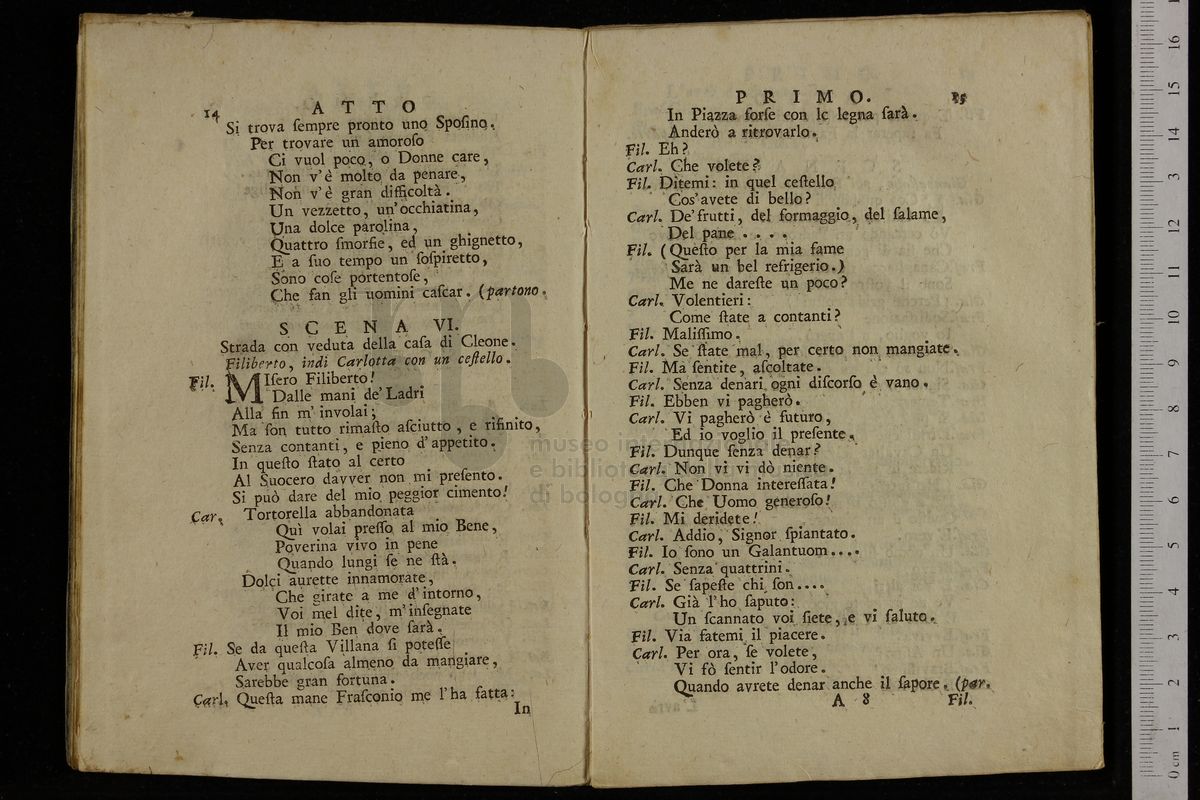 14 ATTO
Si trova ſempre pronto uno Spoſino.
Per trovare un amoroſo
Ci vuol poco, o Donne care,
Non v'è molto da penare,
Non v'è gran difficoltà.
Un vezzetto, un'occhiatina,
Una dolce parolina,
Quattro ſmorfie, ed un ghignetto,
E a ſuo tempo un ſoſpiretto,
Sono coſe portentoſe,
Che fan gli uomini caſcar. (partono.
SCENA VI.
Strada con veduta della caſa di Cleone.
Filiberto, indi Carlotta con un ceſtello.
Fil. MIſero Filiberto!
Dalle mani de' Ladri
Alla fin m' involai;
Ma ſon tutto rimaſto aſciutto, e rifinito,
Senza contanti, e pieno d'appetito.
In queſto ſtato al certo
Al Suocero davver non mi preſento.
Si può dare del mio peggior cimento!
Car. Tortorella abbandonata
Quì volai preſſo al mio Bene,
Poverina vivo in pene
Quando lungi ſe ne ſtà.
Dolci aurette innamorate,
Che girate a me d'intorno,
Voi mel dite, m'inſegnate
Il mio Ben dove ſarà.
Fil. Se da queſta Villana ſi poteſſe
Aver qualcoſa almeno da mangiare,
Sarebbe gran fortuna.
Carl. Queſta mane Fraſconio me l'ha fatta:
In
PRIMO. 15
In Piazza forſe con le legna ſarà.
Anderò a ritrovarlo.
Fil. Eh?
Carl. Che volete?
Fil. Ditemi: in quel ceſtello
Cos'avete di bello?
Carl. De'frutti, del formaggio, del ſalame,
Del pane . . . .
Fil. (Queſto per la mia fame
Sarà un bel refrigerio.)
Me ne dareſte un poco?
Carl. Volentieri:
Come ſtate a contanti?
Fil. Maliſſimo.
Carl. Se ſtate mal, per certo non mangiate.
Fil. Ma ſentite, aſcoltate.
Carl. Senza denari ogni diſcorſo è vano.
Fil. Ebben vi pagherò.
Carl. Vi pagherò è futuro,
Ed io voglio il preſente.
Fil. Dunque ſenza denar?
Carl. Non vi vi dò niente.
Fil. Che Donna intereſſata!
Carl. Che Uomo generoſo!
Fil. Mi deridete!
Carl. Addio, Signor ſpiantato.
Fil. Io ſono un Galantuom....
Carl. Senza quattrini.
Fil. Se ſapeſte chi ſon....
Carl. Già l'ho ſaputo:
Un ſcannato voi ſiete, e vi ſaluto.
Fil. Via fatemi il piacere.
Carl. Per ora, ſe volete,
Vi fò ſentir l'odore.
Quando avrete denar anche il ſapore. (par.
A 8 Fil.
museo internazionale
e biblioteca della musica
di bologna
0 cm 1 2 3 4 5 6 7 8 9 10 11 12 13 14 15 16